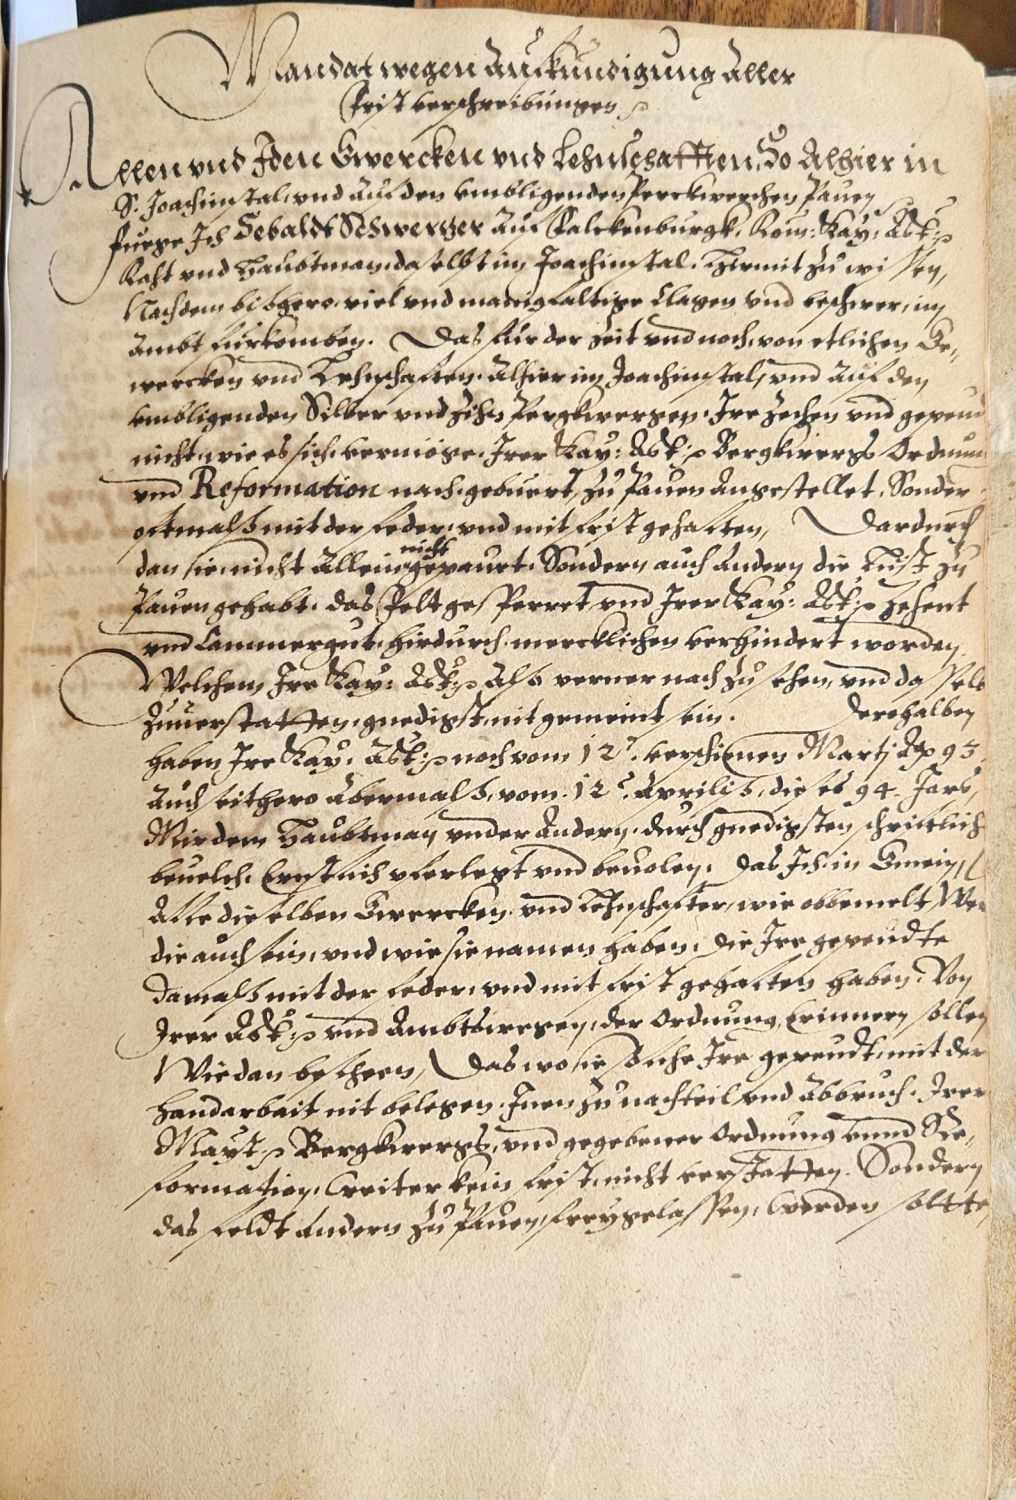 Mandat wegen Aufkündigung Aller
Frist verschreibungen
Allen vnd Jden Gwercken vnd Lehnschafften, So Alhier in
S. Joachimstal, vnd auf den vmbligenden Perckwerchen Pauen
fuege Jch Sebaldt Schwertzer auf Falckenburgk, Röm: Kay: Mt:
Raht vnd Haubtman daselbst im Joachimstal. Hiermit zu wissen,
Nachdem bishero viel vnd manigfaltige Clagen vnd beschwer, im
Ambt fürkomben. Das für der Zeit vnd noch, von etlichen Ge,,
wercken vnd Lehnschaften, Alhier im Joachimstal, vnd auf den
vmbligenden Silber vnd Zihn Pergkwergen, Ire Zechen vnd gepeud
nicht, wie es sich, vermöge, Irer Kay: Mt: Bergkwergs Ordnung
vnd Reformation nach, gebüert, zu Pauen angestellet, Sonder
oftmals mit der feder, vnd mit frist gehalten, Dardurch
dan sie, nicht allein nicht gepaurt, Sondern auch andern die Lust zu
Pauen gehabt, das Felt gesperret, vnd Irer Kay: Mt: Zehent
vnd Cammergut, hirdurch, mercklichen verhindert worden,
Welchem Ire Kay: Mt: Also verner nach zu sehen, vnd dasselb
Zuuerstatten, gnedigst nit gemeint sein. Derohalben
haben Ire Kay: Mt: noch vom 12. verschienen Martj Ao 93
auch seithero abermals, vom 12. Aprilis, dises 94. Jars,
Mir dem Haubtman vnder andern, durch gnedigsten schriftlich
beuelch, Ernstlich auferlegt vnd beuolen, das Jch in Gmein,
Alle dieselben Gwercken vnd Lehnschafter, wie obbemelt, Wer
die auch sein, vnd wie sie namen haben, die Ire gepeudte
damals mit der feder, vnd mit frist gehalten haben, Von
Irer Mt: vnd Ambtswegen, der Ordnung, Erinnern sollen
Wie dan beschehen, Das wo sie solche Ire gepeudt, mit der
handarbait nit belegen, Inen zu nachteil vnd Abbruch, Irer
Mayt: Bergkwergs, vnd gegebener Ordnung vnnd Re,,
formation, Weiter kein frist, nicht verstatten, Sondern
das feldt andern zu Pauen, freygelassen, werden soltte,